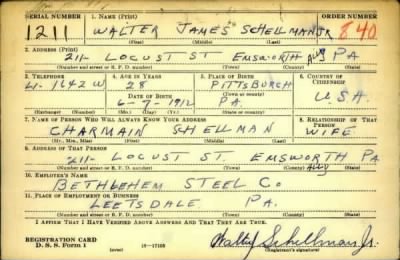 SERIAL NUMBER 1. NAME (Print) ORDER NUMBER
1211 WALTER JAMES SCHELLMAN JR 840
(First) (Middle) (Last)
2. ADDRESS (Print)
211- LOCUST ST EMSWORTH ALLY PA
(Number and street or R. F. D. number) (Town) (County) (State)
3. TELEPHONE 4. AGE IN YEARS 5. PLACE OF BIRTH 6. COUNTRY OF CITIZENSHIP
28 PITTSBURGH
(Town or county)
1642W DATE OF BIRTH
6-7-1912 PA. U.S.A.
(Exchange) (Number) (Mo.) (Day) (Yr.) (State or country)
7. NAME OF PERSON WHO WILL ALWAYS KNOW YOUR ADDRESS 8. RELATIONSHIP OF THAT PERSON
CHARMAIN SCHELLMAN WIFE
(Mr., Mrs., Miss) (First) (Middle) (Last)
9. ADDRESS OF THAT PERSON
211- LOCUST ST. EMSWORTH ALLY PA
(Number and street or R. F. D. number) (Town) (County) (State)
10. EMPLOYER'S NAME
BETHLEHEM STEEL CO
11. PLACE OF EMPLOYMENT OR BUSINESS
LEETSDALE PA.
(Number and street or R. F. D. number) (Town) (County) (State)
I AFFIRM THAT I HAVE VERIFIED ABOVE ANSWERS AND THAT THEY ARE TRUE.
REGISTRATION CARD
D. S. S. Form 1 (over) 16-17105 Walter J. Schellman Jr.
(Registrant's signature)